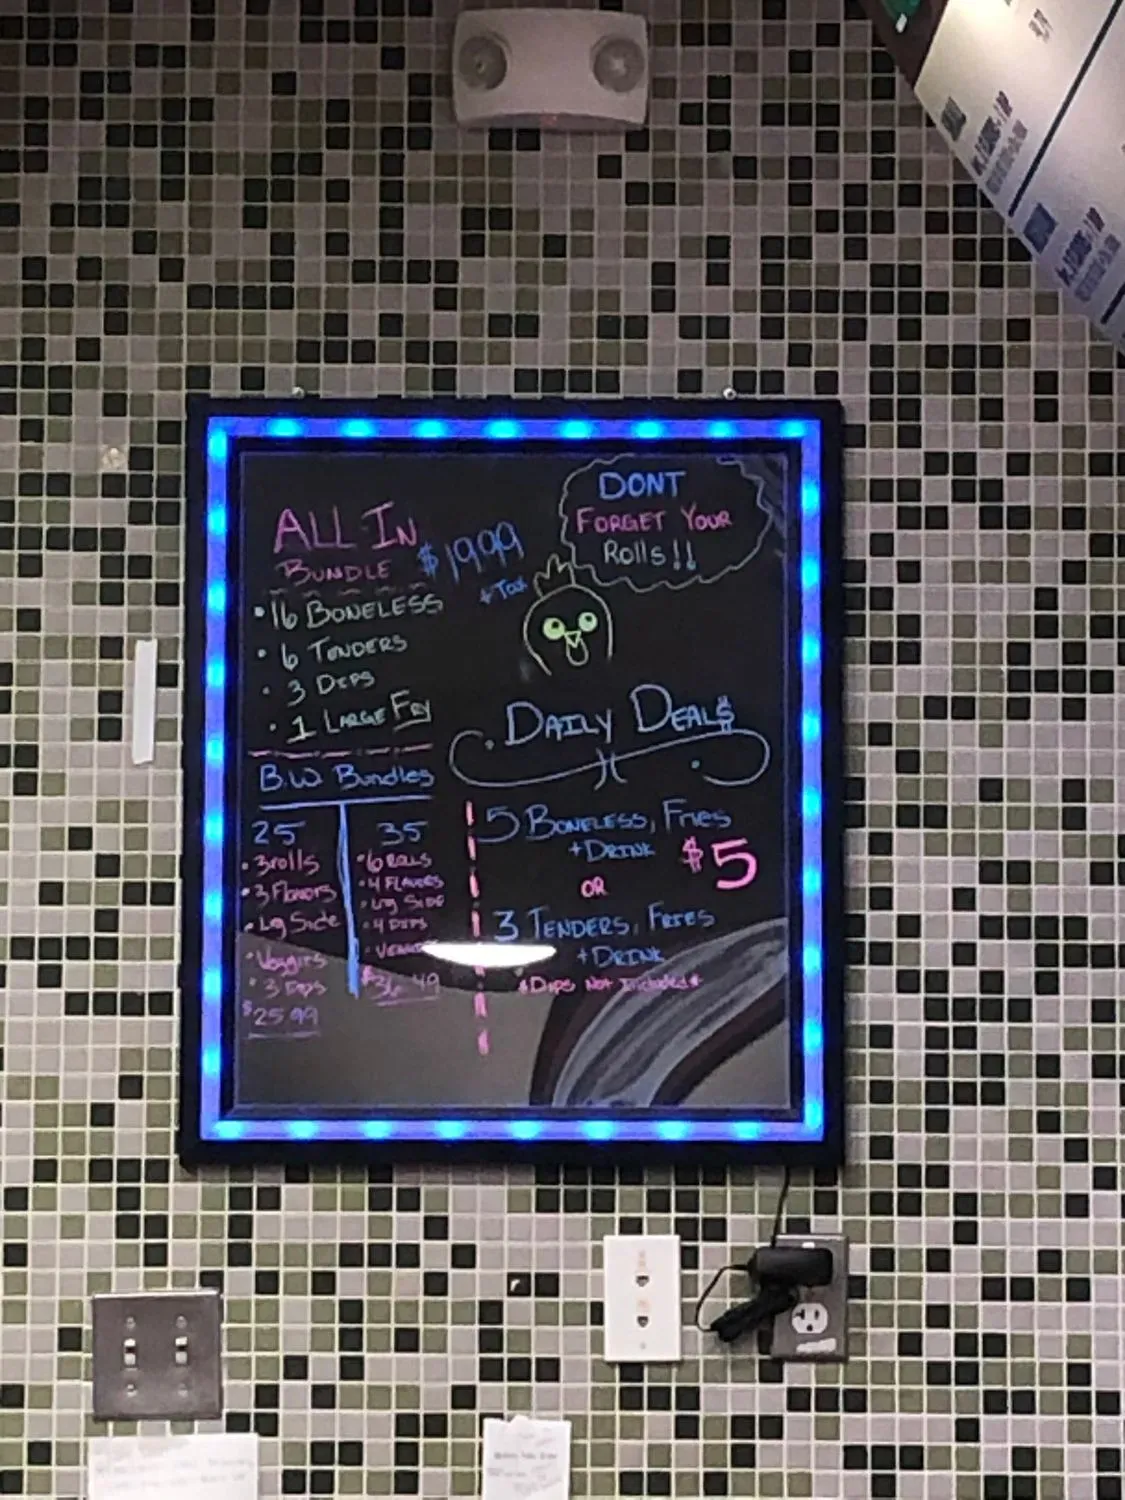 DONT
FORGET YOUR
Rolls!!
ALL IN
BUNDLE
$1999
+Tax
• 16 BONELESS
• 6 TENDERS
• 3 DIPS
• 1 LARGE FRY
B.W Bundles
25
• 3rolls
• 3 Flavors
• Lg Side
• Veggies
• 3 Dips
$25.99
35
• 6 ROLLS
• 4 FLAVORS
• Lg SIDE
• 4 DIPS
$36.49
DAILY DEAL$
5 BONELESS, Fries
+DRINK
$5
OR
3 TENDERS, FRIES
+DRINK
*Dips Not Included*